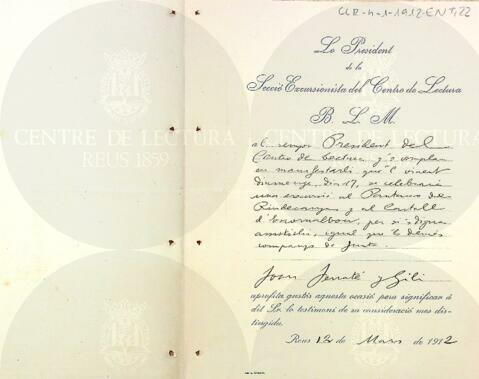 CLR-h-1-1912-ENT,22
Lo President
de la
Secció Excursionista del Centro de Lectura
B. L. M.
al senyor President del
Centro de Lectura y's complau
en manifestarli que'l vinent
diumenge, dia 17, se celebrará
una excursió al Pantano de
Riudecanyes y al Castell
d'Escornalbou, per si's digna
assistirhi, igual que'ls demés
companys de Junta.
Joan Serraté y Gili
aprofita gustós aquesta ocasió pera significar á
dit Sr. lo testimoni de sa consideració mes dis-
tingida.
Reus 12 de Mars de 1912
CENTRE DE LECTURA
REUS 1859
CENTRE DE LECTURA
REUS 1859